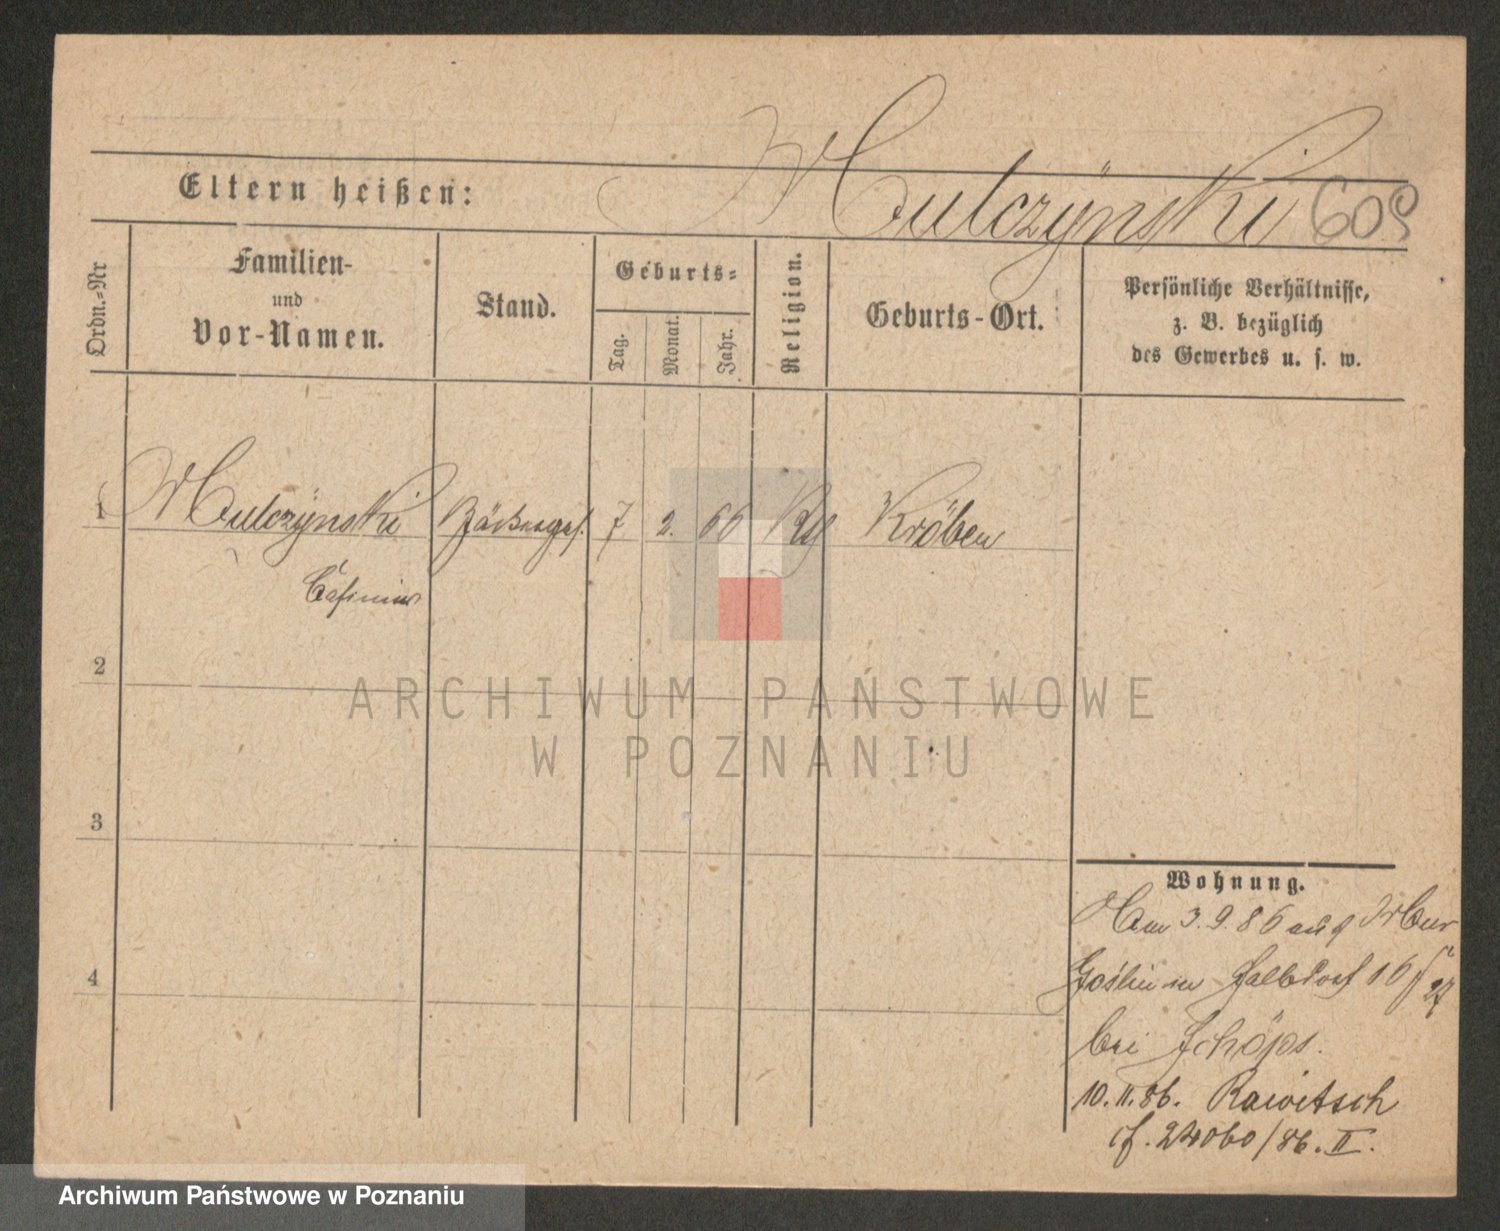 Mulczýnski 609
Eltern heißen:
Ordn.-Nr
Familien-
und
Vor-Namen.
Stand.
Geburts-
Tag.
Monat.
Jahr.
Religion.
Geburts-Ort.
Persönliche Verhältnisse,
z. B. bezüglich
des Gewerbes u. s. w.
1 Mulczÿnski Bäckerges. 7 2. 66 Kröben
Casimir
2
3
4
ARCHIWUM PAŃSTWOWE
W POZNANIU
Wohnung.
Am 3.9.86 aus Mur
Goslin in Halbdorf 16
bei Schöps.
10.11.86. Rawitsch
cf. 24060/86. II.
Archiwum Państwowe w Poznaniu